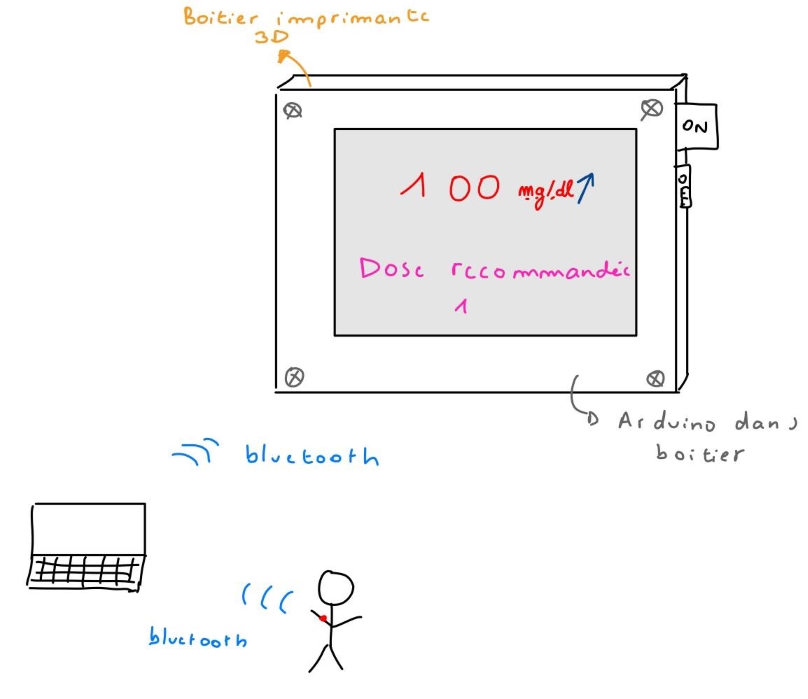 Boitier imprimante
3D
ON
100 mg/dl ↑
Dose recommandée
1
Arduino dans
boitier
bluetooth
bluetooth